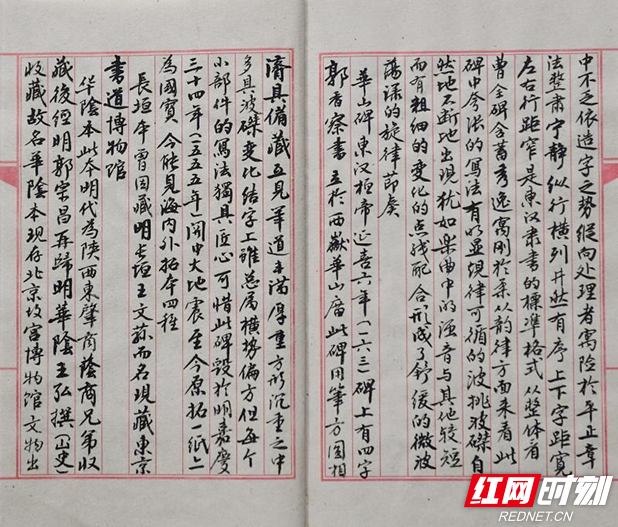 中不乏依造字之势縱向处理者寓險於平正章
法整肅宁静纵行横列井然有序上下字距寬
左右行距窄是東汉隶書的標準格式从整体看
曹全碑含蓄秀逸寓刚於柔从韵律方面来看此
碑中夸张的寫法有明显規律可循的波挑波磔自
然地不断地出現犹如樂曲中的强音与其他较短
而有粗细的变化的点线配合形成了舒缓的微波
荡漾的旋律節奏
華山碑東汉桓帝延喜六年（一六三）碑上有四字
郭香察書立於西嶽華山廟此碑用筆方圆相
濟具備藏見道丰满厚重方形沉重之中
多具波磔变化结字上雖总属横势偏方但每个
小部件的寫法獨具匠心可惜此碑毁於明嘉慶
三十四年（一五五五年）関中大地震至今原拓一纸上
為國寶今能見海内外拓本四種
長垣本曾因藏明長垣王文荪而名現藏東京
書道博物馆
华陰本此本明代為陕西東肇商蔭商兄弟收
藏後經明郭宗昌再歸明華陰王弘撰（山史）
收藏故名華陰本現存北京故宫博物馆文物出
红网时刻
REDNET.CN